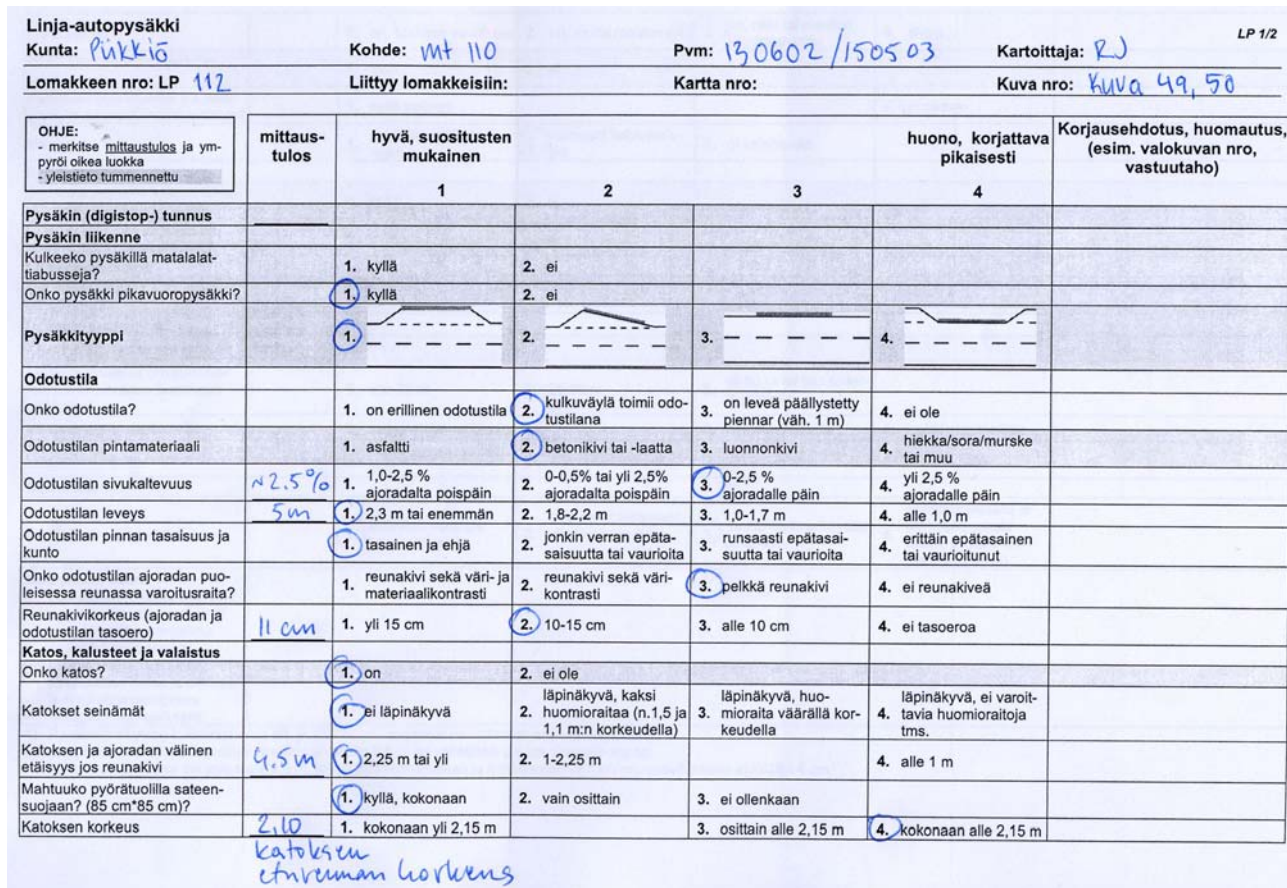 Linja-autopysäkki
LP 1/2
Kunta: Piikkiö Kohde: mt 110 Pvm: 130602/150503 Kartoittaja: RJ
Lomakkeen nro: LP 112 Liittyy lomakkeisiin: Kartta nro: Kuva nro: Kuva 49, 50
OHJE:
- merkitse mittaustulos ja ym-
pyröi oikea luokka
- yleistieto tummennettu
mittaus-
tulos
hyvä, suositusten
mukainen
1
2
3
huono, korjattava
pikaisesti
4
Korjausehdotus, huomautus,
(esim. valokuvan nro,
vastuutaho)
Pysäkin (digistop-) tunnus
Pysäkin liikenne
Kulkeeko pysäkillä matalalat-
tiabusseja?
1. kyllä
2. ei
Onko pysäkki pikavuoropysäkki?
1. kyllä
2. ei
Pysäkkityyppi
1.
2.
3.
4.
Odotustila
Onko odotustila?
1. on erillinen odotustila
2. kulkuväylä toimii odo-
tustilana
3. on leveä päällystetty
piennar (väh. 1 m)
4. ei ole
Odotustilan pintamateriaali
1. asfaltti
2. betonikivi tai -laatta
3. luonnonkivi
4. hiekka/sora/murske
tai muu
Odotustilan sivukaltevuus
~2.5%
1. 1,0-2,5 %
ajoradalta poispäin
2. 0-0,5% tai yli 2,5%
ajoradalta poispäin
3. 0-2,5 %
ajoradalle päin
4. yli 2,5 %
ajoradalle päin
Odotustilan leveys
5m
1. 2,3 m tai enemmän
2. 1,8-2,2 m
3. 1,0-1,7 m
4. alle 1,0 m
Odotustilan pinnan tasaisuus ja
kunto
1. tasainen ja ehjä
2. jonkin verran epäta-
saisuutta tai vaurioita
3. runsaasti epätasai-
suutta tai vaurioita
4. erittäin epätasainen
tai vaurioitunut
Onko odotustilan ajoradan puo-
leisessa reunassa varoitusraita?
1. reunakivi sekä väri- ja
materiaalikontrasti
2. reunakivi sekä väri-
kontrasti
3. pelkkä reunakivi
4. ei reunakiveä
Reunakivikorkeus (ajoradan ja
odotustilan tasoero)
11 cm
1. yli 15 cm
2. 10-15 cm
3. alle 10 cm
4. ei tasoeroa
Katos, kalusteet ja valaistus
Onko katos?
1. on
2. ei ole
Katokset seinämät
1. ei läpinäkyvä
2. läpinäkyvä, kaksi
huomioraitaa (n.1,5 ja
1,1 m:n korkeudella)
3. läpinäkyvä, huo-
mioraita väärällä kor-
keudella
4. läpinäkyvä, ei varoit-
tavia huomioraitoja
tms.
Katoksen ja ajoradan välinen
etäisyys jos reunakivi
4.5m
1. 2,25 m tai yli
2. 1-2,25 m
4. alle 1 m
Mahtuuko pyörätuolilla sateen-
suojaan? (85 cm*85 cm)?
1. kyllä, kokonaan
2. vain osittain
3. ei ollenkaan
Katoksen korkeus
2,10
1. kokonaan yli 2,15 m
3. osittain alle 2,15 m
4. kokonaan alle 2,15 m
katoksen
etureunan korkeus